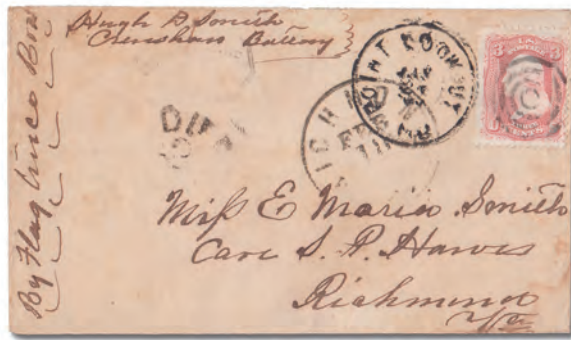 Hugh P. Smith
Crenshaw Battery
By Flag truce Boat
DUE
10
POINT LOOKOUT
MD
RICHM
FE
11
3
3
CENTS
Miſs E Maria Smith
Care S. P. Hawes
Richmond
Va